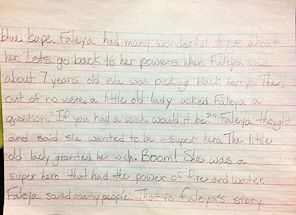 blue cape. Faleya had many wonderful things about
her. Lets go back to her powers when Faleya was
about 7 years old she was picking black berry's. Then
out of no were, a little old lady asked Faleya a
question. "If you had a wish would it be?" Faleya thought
and said she wanted to be a super hero. The little
old lady granted her wish. Boom! She was a
super hero that had the power of fire and water.
Faleya saved many people. That is Faleya's story.